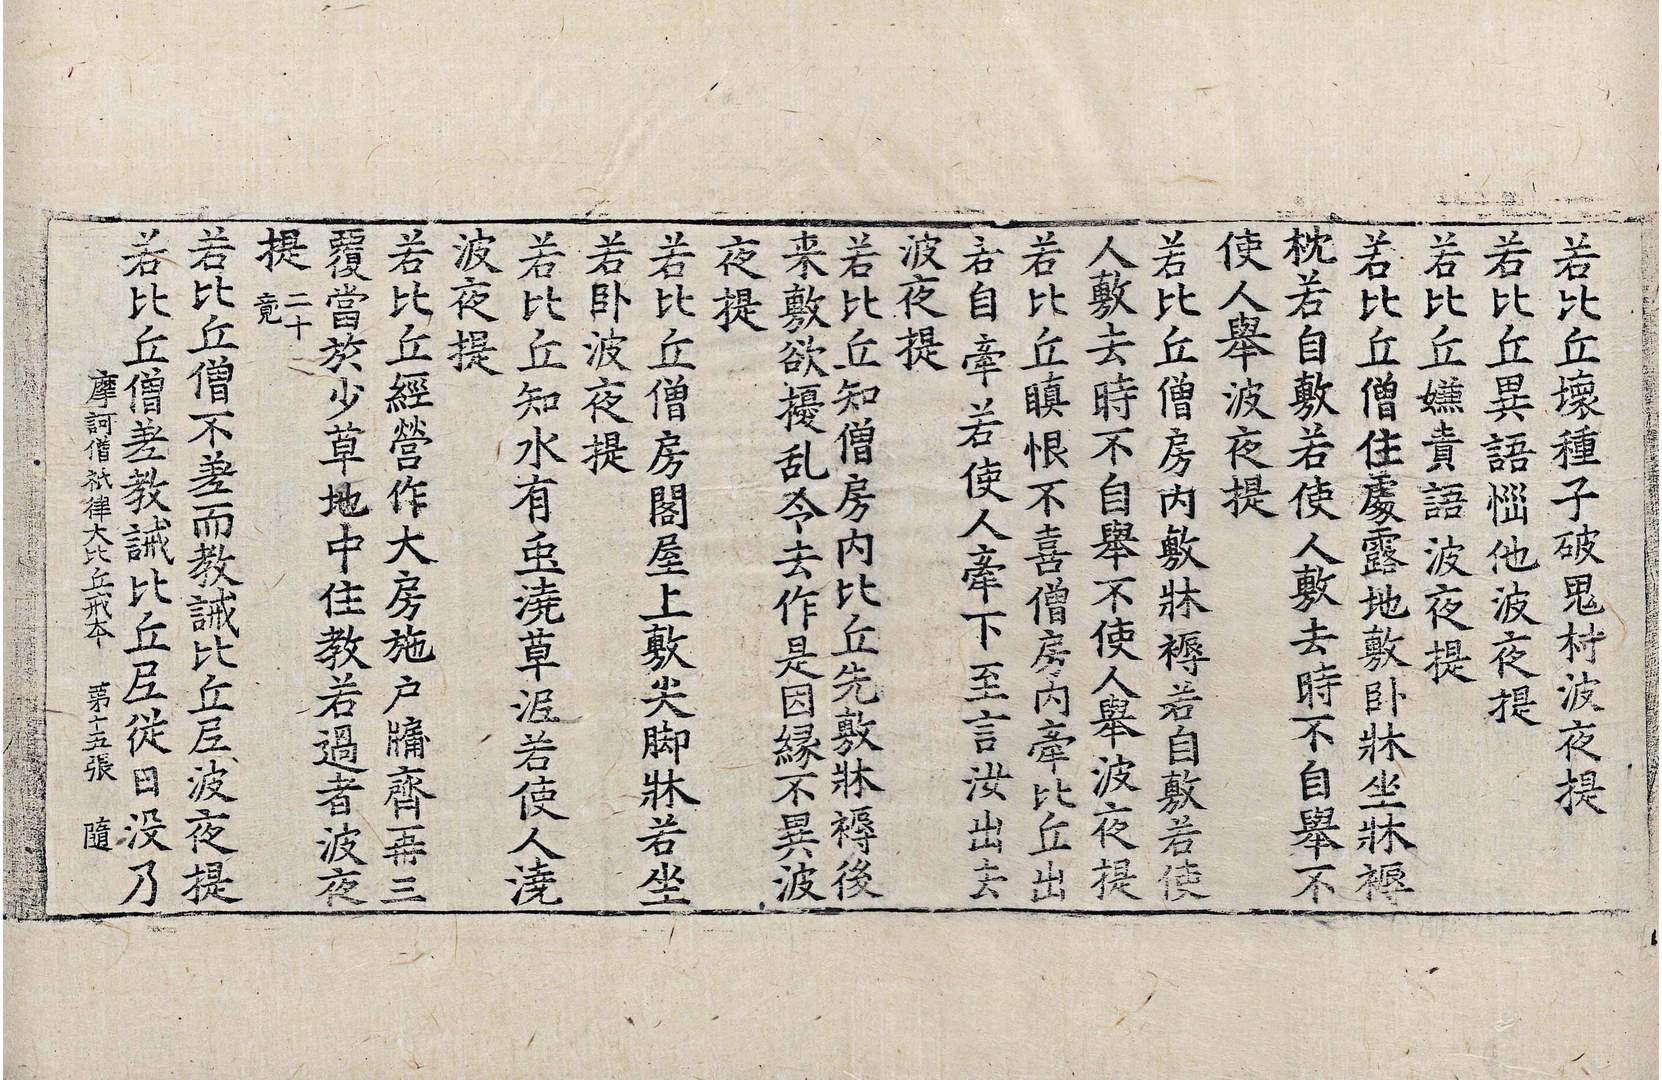 若比丘壞種子破鬼村波夜提
若比丘異語惱他波夜提
若比丘嫌責語波夜提
若比丘僧住處露地敷卧牀坐牀褥
枕若自敷若使人敷去時不自舉不
使人舉波夜提
若比丘僧房内敷牀褥若自敷若使
人敷去時不自舉不使人舉波夜提
若比丘瞋恨不喜僧房内牽比丘出
若自牽若使人牽下至言汝出去
波夜提
若比丘知僧房内比丘先敷牀褥後
来敷欲擾乱令去作是因緣不異波
夜提
若比丘僧房閣屋上敷尖脚牀若坐
若卧波夜提
若比丘知水有虫澆草泥若使人澆
波夜提
若比丘經營作大房施户牖齊再三
覆當於少草地中住教若過者波夜
提 二十竟
若比丘僧不差而教誡比丘尼波夜提
若比丘僧差教誡比丘尼從日没乃
摩訶僧祇律大比丘戒本 第十五張 隨